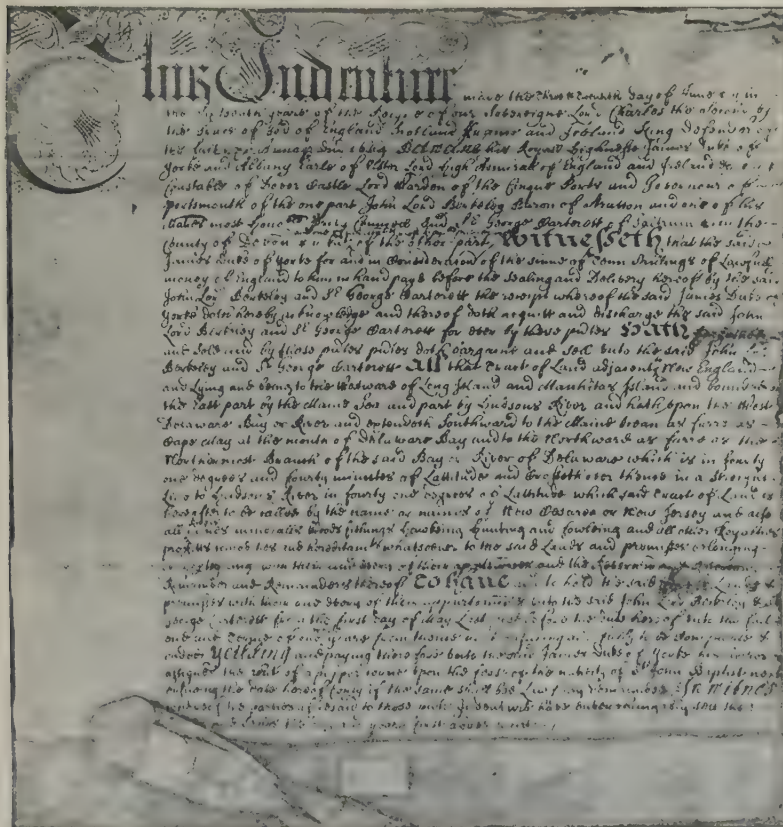 This Indenture made the Three and Twentieth day of June in
the Sixteenth yeare of the Raigne of our Soveraigne Lord Charles the Second by
the Grace of God of England Scotland France and Ireland King Defender of
the Faith Annoq Domini 1664 Betweene his Royall Highnesse James Duke of
Yorke and Albany Earle of Ulster Lord High Admirall of England and Ireland
Constable of Dover Castle Lord Warden of the Cinque Ports and Governour of
Portsmouth of the one part John Lord Berkeley Baron of Stratton and one of his
Majesties most Honoble Privy Councell And Sr George Carterett of Saltrum in the
County of Devon of the other part Witnesseth that the said
James Duke of Yorke for and in Consideration of the summe of Tenn Shillings of Lawfull
money of England to him in hand payd before the Sealing and Delivery hereof by the said
John Lord Berkeley and Sr George Carterett the receipt whereof the said James Duke of
Yorke doth hereby acknowledge and thereof doth acquitt and discharge the said John
Lord Berkeley and Sr George Carterett for ever by these pntes Hath
and Sold and by these pntes doth Bargaine and sell unto the said John
Berkeley and Sr George Carterett All that Tract of Land adjacent to New England
and Lying and being to the Westward of Long Island and Manhitas Island and bounded on
the East part by the Maine Sea and part by Hudsons River and hath upon the West
Delaware Bay or River and extendeth Southward to the Maine Ocean as farre as
Cape May at the mouth of Delaware Bay and to the Northward as farre as the
Northermost Branch of the said Bay or River of Delaware which is in fourty
one degrees and fourty minutes of Lattitude and Crosseth over thence in a Streight
Line to Hudsons River in fourty one degrees of Lattitude which said Tract of Land is
hereafter to be called by the name or names of New Cesarea or New Jersey and also
all mines mineralls Woods fishings Hawking Hunting and fowling and all other Royalties
proffitts and hereditaments whatsoever to the said Lands and premisses belonging
with their and every of their appurtenances and the Reversion
Remainder and Remainders thereof To have and to hold the said Lands
premisses with their and every of their appurtenances unto the said John Lord Berkeley
George Carterett from the first day of May Last past before the date hereof unto the full
end and Terme of one yeare from thence next ensuing and fully to be Compleate
ended Yeilding and paying therefore unto the said James Duke of Yorke
assignes the rent of a pepper corne upon the feast of the nativity of St John Baptist next
ensuing the date hereof only if the same shall bee Lawfully demanded In witnes
whereof the parties aforesaid to these Indentures have enterchangeably sett their
yeare first above written